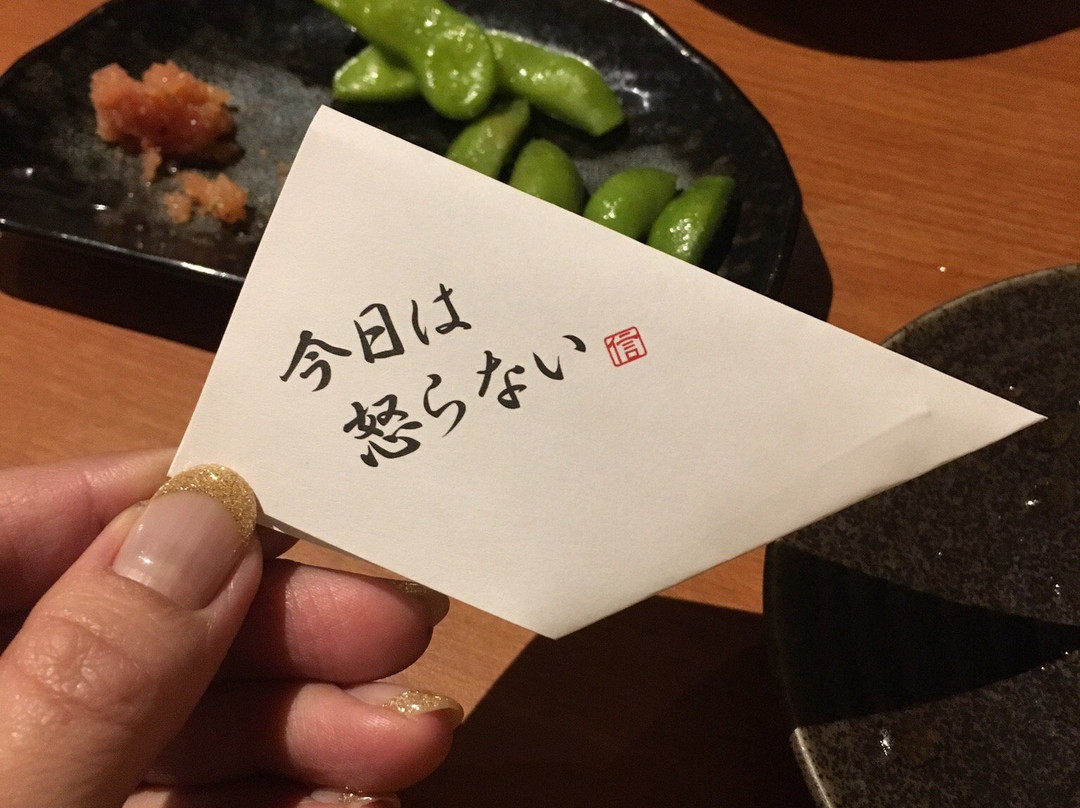 今日は
怒らない
信